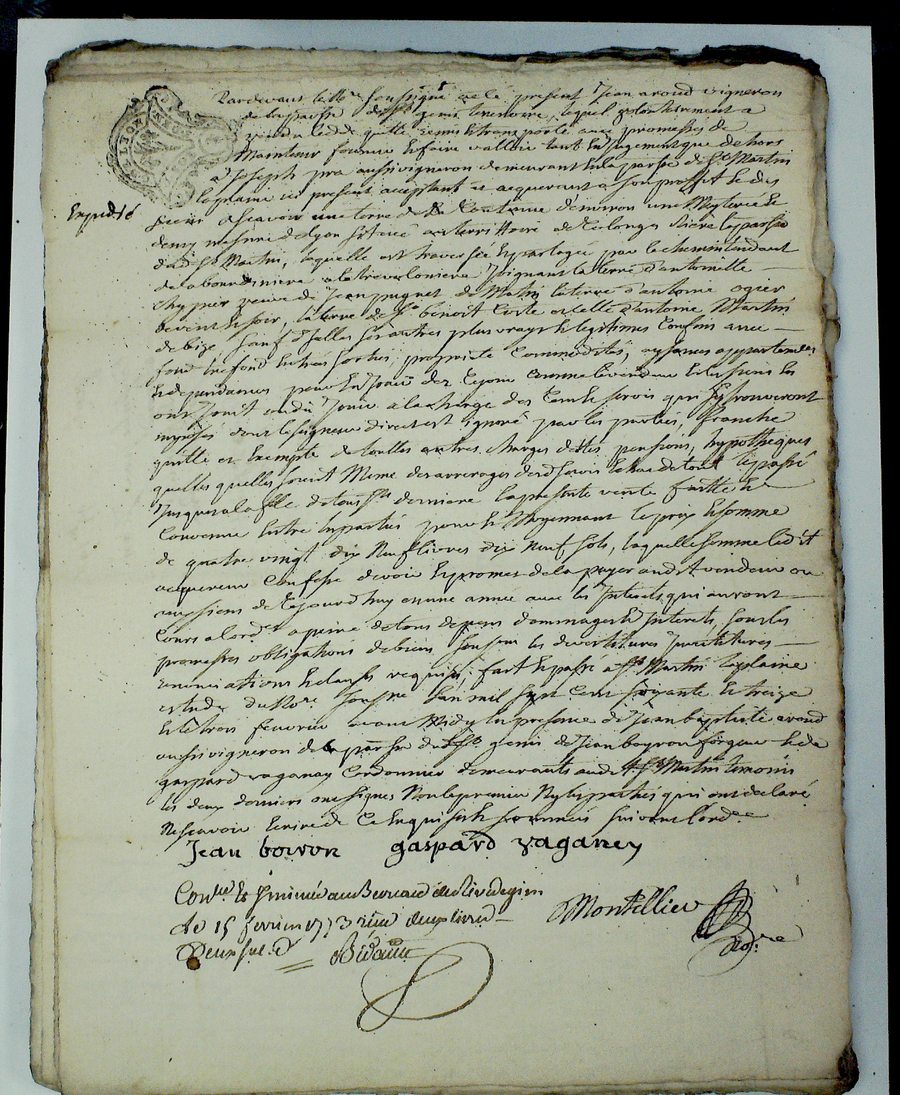 Pardevant le No.re soussigné a été présent Jean aroud vigneron
de la paroisse de St genis terrenoire, lequel volontairement a
vendu cédé quitté remis et transporté avec promesses de
Maintenir fournir et faire valloir tant en jugement que dehors
a Joseph pra aussi vigneron demeurant en la paroisse de St Martin
la plaine ici présent acceptant et acquereur a son proffit et des
Expedié
siens a sçavoir une terre de la Contenue d'environ une Meyterée et
demy mesure de Lyon située au territoire de Collonges riere la paroisse
dud. St Martin, laquelle est traversée et partagée par le chemin tendant
de la bourdiniere a la joignant la terre d'antoinette
veuve de Jean puynet de Matin, la terre d'antoine ogier
de vent et soir, la terre de Sr benoit Coste et celle d'antoine Martin
de bize sauf d'elles ses autres plus vrays et legitimes Confins avec
fond très fond entrées sorties, propriété Commodités, aysances appartenances
et dependances pour en Jouir dez Ce jour comme le vendeur et les siens en
ont Jouit ou dû Jouir a la charge des Cens et servis qui s'y trouveront
imposés dont le seigneur direct est ignoré par les parties, franche
quitte et exempte de touttes autres charges dettes, pensions, hypotheques
quelles quelles soient Meme des arrerages desd. servis et de tout le passé
Jusques a la fête de tous Sts derniere la presente vente faitte et
Convenue entre les parties pour et Moyennant le prix et somme
de quatre vingt dix neuf livres dix neuf sols, laquelle somme ledit
acquereur Confesse devoir et promet de la payer audit vendeur ou
aux siens de Ce jourd'huy en une année avec les Interets qui auront
Cours a l'ord.re a peine de tous depens dommages et Interets, sous les
promesses obligations de biens soumissions les devestitures Investitures
renonciations et clauses requises; fait et passé a St Martin la plaine
estude du No.re soussigné L'an mil sept Cent soixante et treize
et le trois fevrier avant Midy en presence de Jean baptiste aroud
aussi vigneron de la paroisse dud. St genis de Jean boyron forgeur et de
gaspard vaganay Cordonnier demeurants audit St Martin temoins
les deux derniers ont signés Non le premier Ny les parties qui ont declaré
Ne sçavoir Ecrire de Ce Enquis et sommés suivant l'ord.ce
Jean boiron gaspard vaganey
Con.lé et Insinué au Bureau de Rivedegier
le 15 fevrier 1773 reçu deux livres
Deux sols
Montellier
No.re